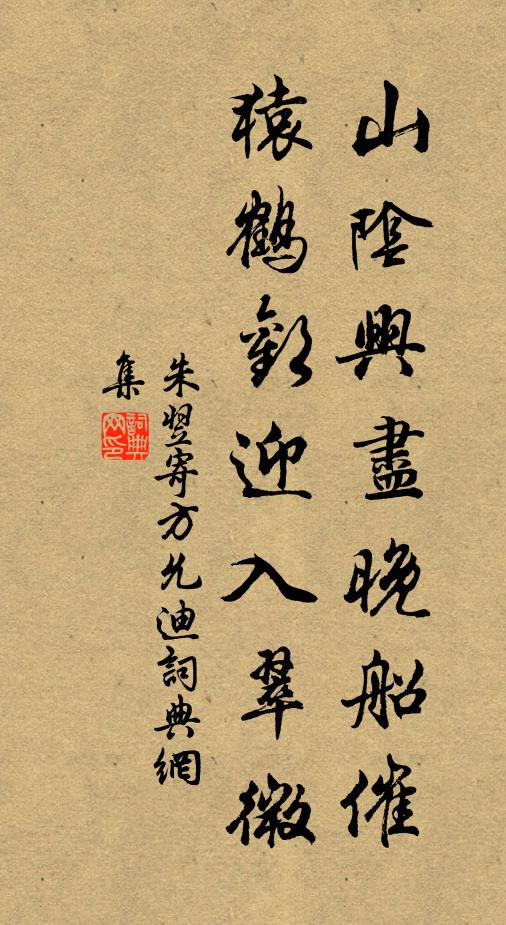 山陰興盡晚船催
猿鶴歡迎入翠微
朱翌寄方允迪詞典網
集
詞典
網印